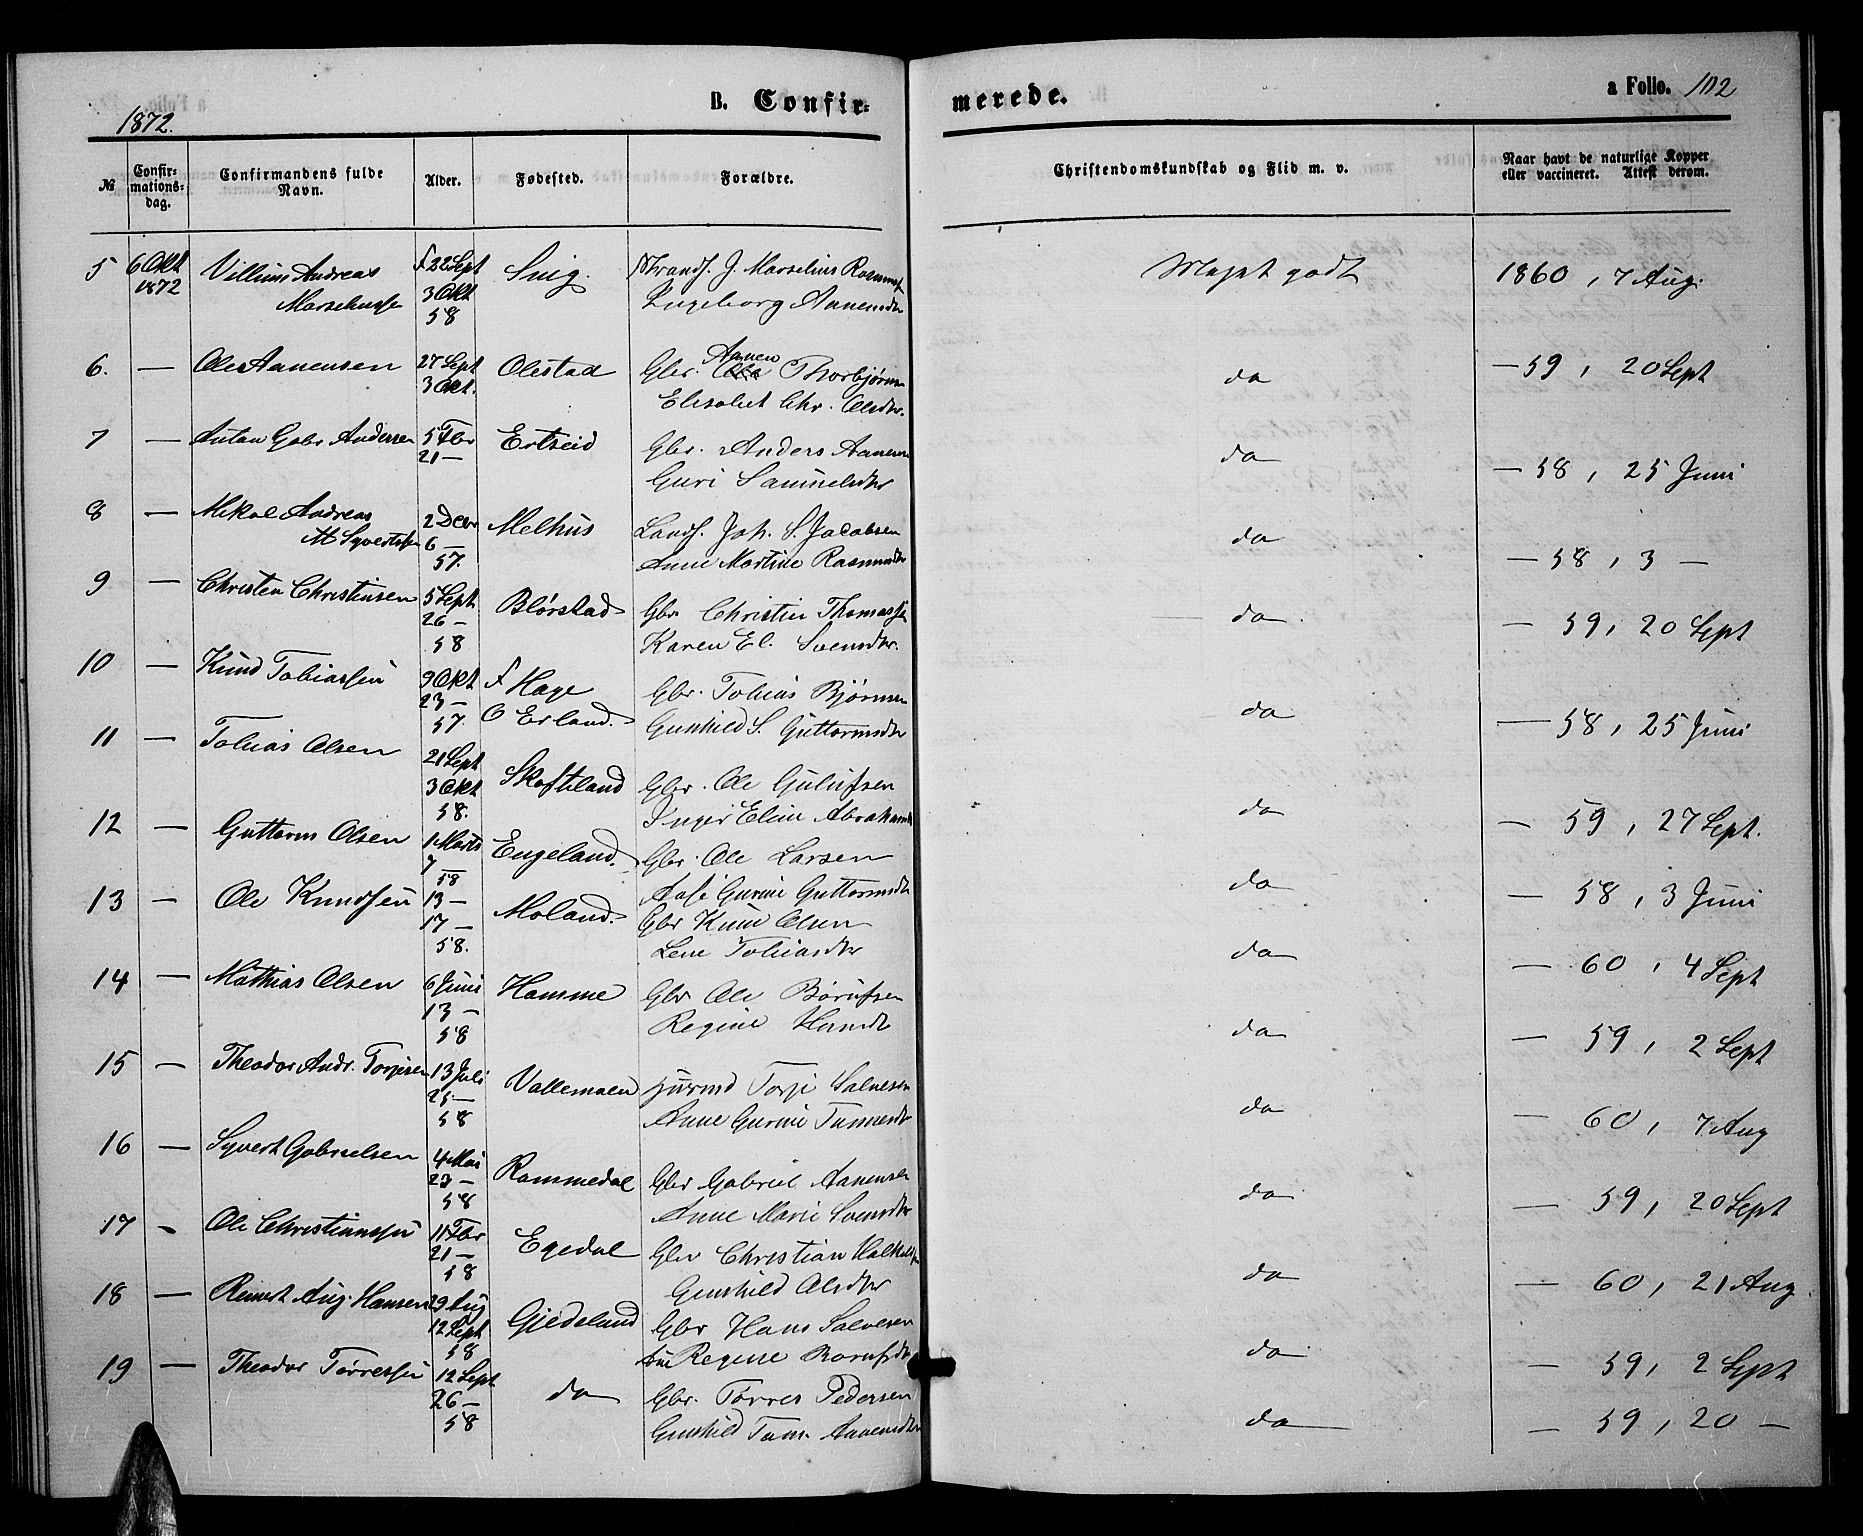 1872.
B. Confir-
merede.
a Folio. 102
№
Confir-
mations-
dag.
Confirmandens fulde
Navn.
Alder.
Fødested.
Forældre.
Christendomskundskab og Flid m. v.
Naar havt de naturlige Kopper
eller vaccineret. Attest derom.
5 6 Okt Andreas f 22 Sept Snig. J. Marselius Meget godt 1860, 7 Aug.
1872 3 Okt Ingeborg Aanensdtr
58
6. — Ole Aanensen 27 Sept Olestad Gbr. Aanen Thorbjørns da — 59, 20 Sept
3 Okt. Elisabet Chr. Olsdtr.
7 — Anton Gabr Andersen 5 Fbr Ertseid Gbr. Anders Aanens da — 58, 25 Juni
21 — Guri Samuelsdtr
8 — Mikal Andreas 2 Decbr Melhus Joh. S. Jacobsen da — 58, 3 —
M Syvertsen 6 — Anne Martine Rasmusdtr
57.
9 — Christen Christensen 5 Sept Blørstad Gbr. Christen Thomassen da — 59, 20 Sept
26 — Karen El. Svensdtr.
58
10 — Knud Tobiassen 9 Okt f Hage Gbr. Tobias Bjørnsen da — 58, 25 Juni
23 — O Erland. Gunhild S. Guttormsdtr
57.
11 — Tobias Olsen 21 Sept Skofteland Gbr. Ole da — 59, 27 Sept.
3 Okt Inger Eline
58.
12 — Guttorm Olsen 1 Marts Engeland. Gbr. Ole Larsen da — 58, 3 Juni
7 — Aase Gurine Guttormsdtr
58
13 — Ole Knudsen 13 — Moland. Gbr Knud Olsen da — 60, 4 Sept
17 — Lene Tobiasdtr
58.
14 — Mathias Olsen 6 Juni Homme Gbr Ole Børufsen da — 59, 2 Sept
13 — Regine Hansdtr
58
15 — Theodor Andr. Torjesen 13 Juli Vallemoen Husmd Torje Salvesen da — 60, 7 Aug
25 — Anne Gurine
58
16 — Syvert Gabrielsen 4 Mai Rommedal Gbr Gabriel Aanensen da — 59, 20 Sept
23 — Anne Marie Svensdtr
58
17 — Ole Christianssen 11 Fbr Egedal Gbr Christian da — 60, 21 Aug
21 — Gunhild Olsdtr
58
18 — Reinert Aug. Hansen 29 Aug Gjedeland Gbr Hans Salvesen da — 59, 2 Sept
12 Sept Regine
58
19 — Theodor Tørressen 12 Sept do Gbr. Tørres Pedersen da — 59, 20 —
26 — Gunhild Tom. Aanensdtr
58